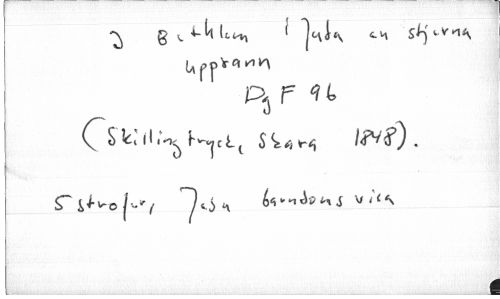 I Bethlem i Juda en stjerna
upprann
DgF 96
(Skillingtryck, Skara 1848).
5 strofer, Jesu barndomsvisa